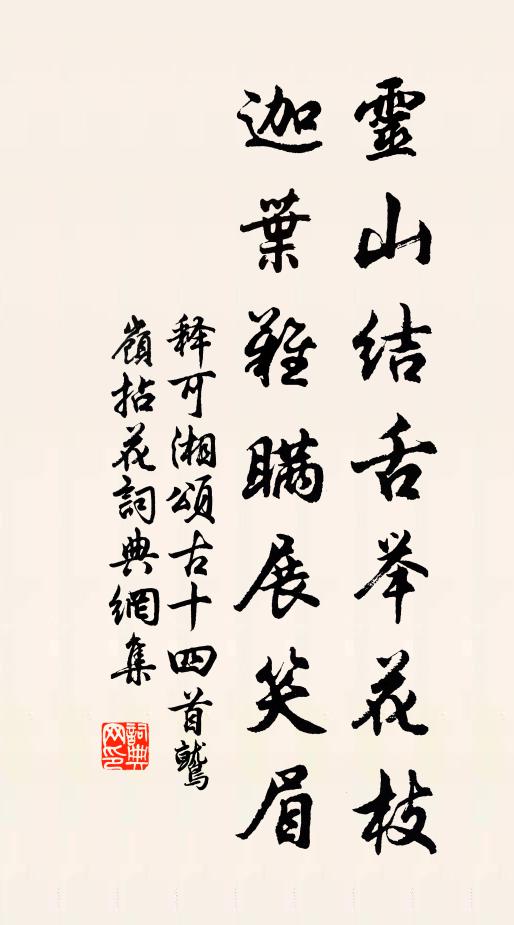 靈山结舌举花枝
迦葉難瞞展笑眉
释可湘頌古十四首鷲
嶺拈花詞典網集
詞典
网印